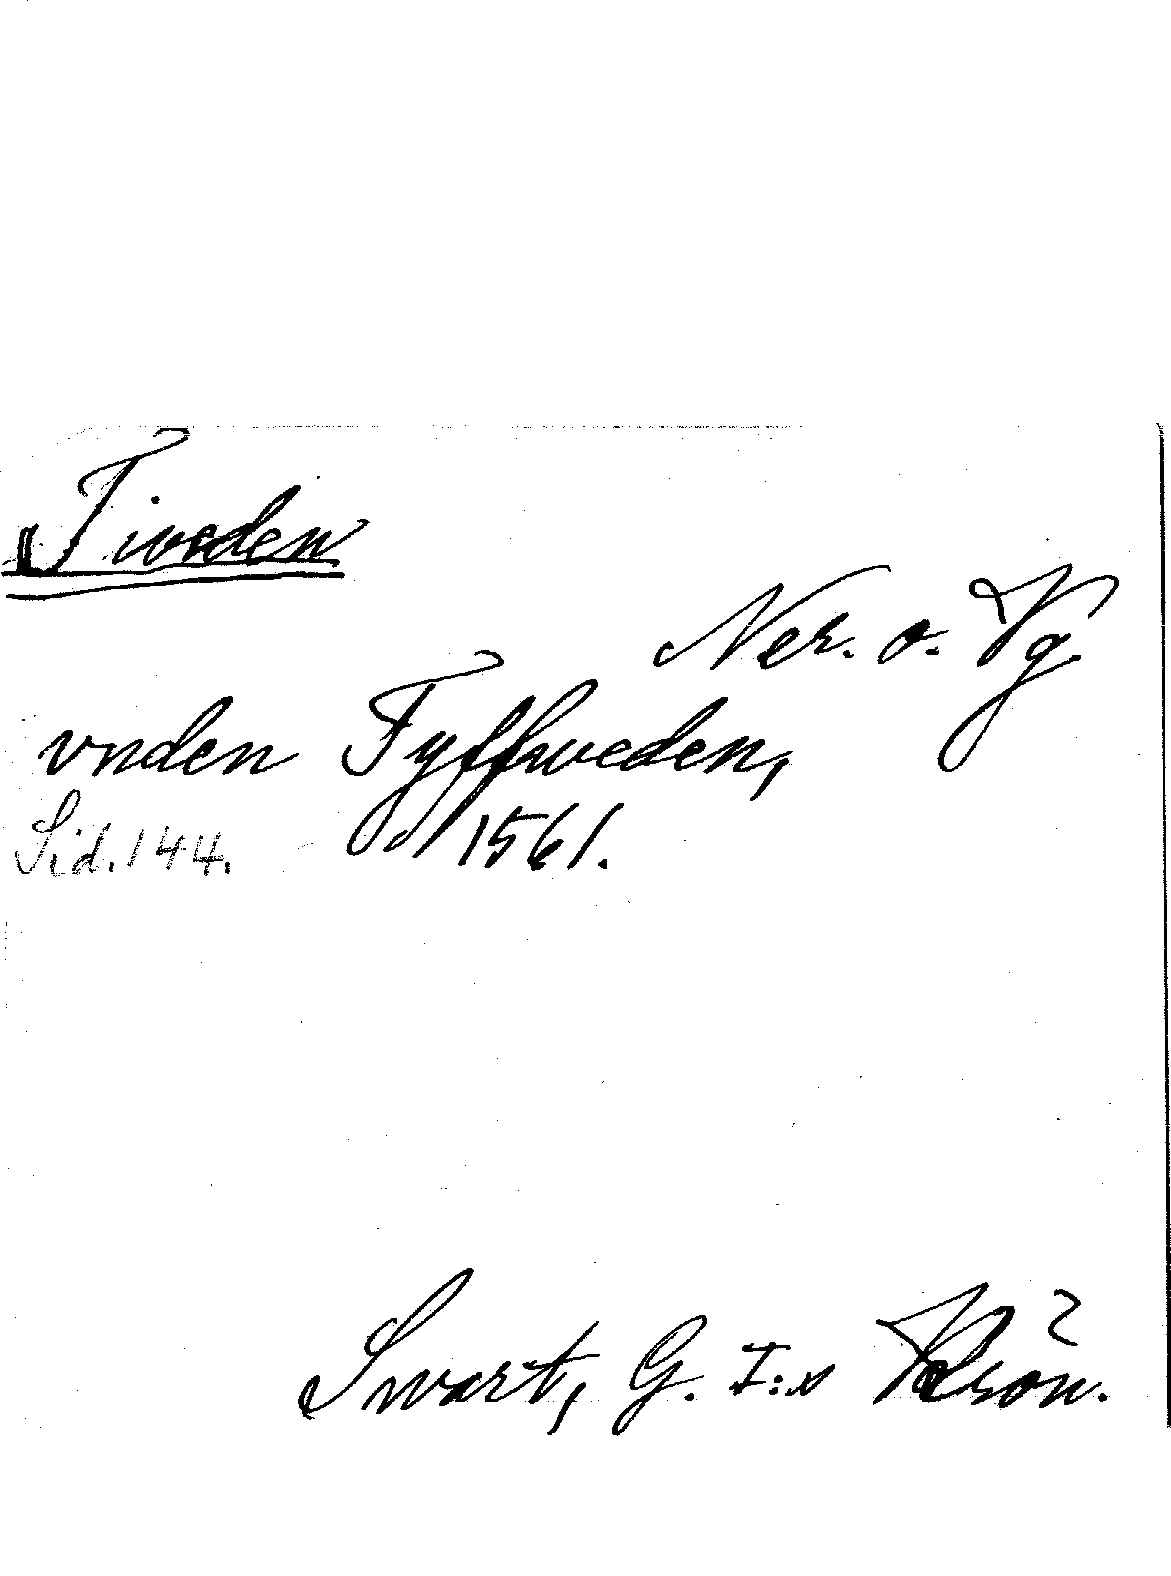 Tiveden
Ner. o. Vg.
vnden Tyffweden,
Sid. 144. 1561.
Swart, G. I:s Krön.